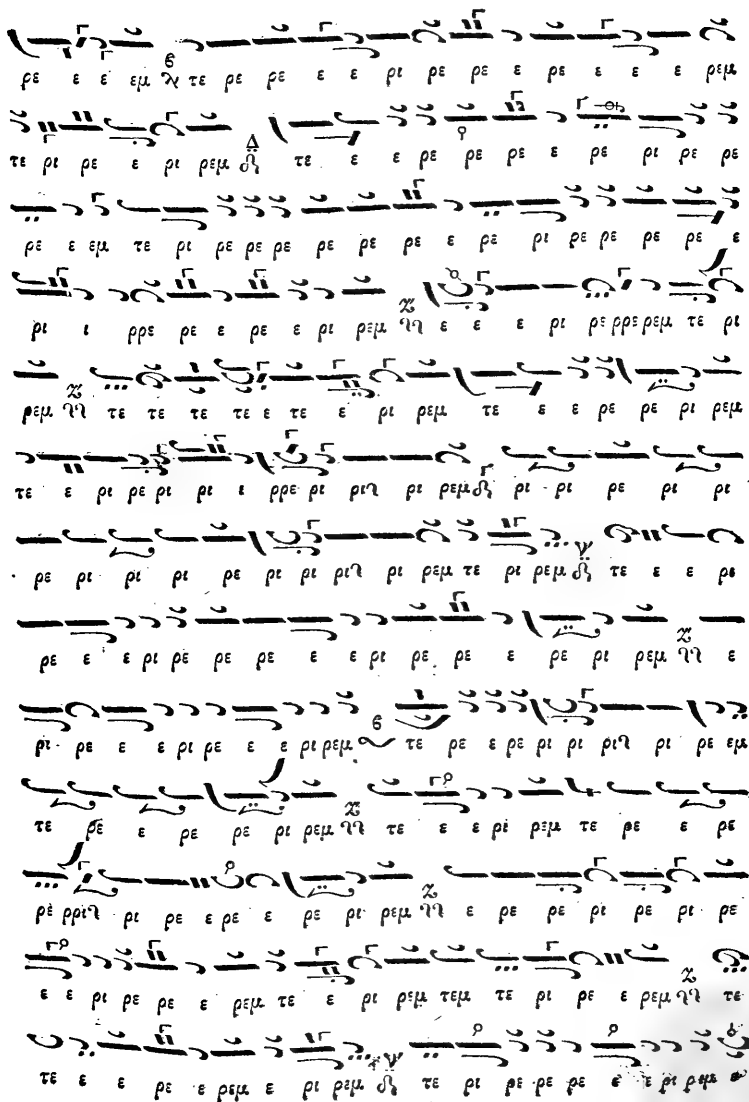 ρε ε ε εμ τε ρε ρε ε ε ρι ρε ρε ε ρε ε ε ε ρεμ
τε ρι ρε ε ρι ρεμ τε ε ε ρε ρε ρε ε ρε ρι ρε ρε
ρε ε εμ τε ρι ρε ρε ρε ρε ρε ρε ε ρε ρι ρε ρε ρε ρε ε
ρι ι ρρε ρε ε ρε ε ρι ρεμ ε ε ε ρι ρε ρρε ρεμ τε ρι
ρεμ τε τε τε τε ε τε ε ρι ρεμ τε ε ε ρε ρε ρι ρεμ
τε ε ρι ρε ρι ρι ι ρρε ρι ρι ρι ρεμ ρι ρι ρε ρι ρι
ρε ρι ρι ρι ρε ρι ρι ρι ρι ρεμ τε ρι ρεμ τε ε ε ρε
ρε ε ε ρι ρε ρε ρε ε ε ρι ρε ρε ε ρε ρι ρεμ ε
ρι ρε ε ε ρι ρε ε ε ρι ρεμ τε ρε ε ρε ρι ρι ρι ρι ρε εμ
τε ρε ε ρε ρε ρι ρεμ τε ε ε ρι ρεμ τε ρε ε ρε
ρε ρρι ρι ρε ε ρε ε ρε ρι ρεμ ε ρε ρε ρι ρε ρι ρε
ε ε ρι ρε ρε ε ρεμ τε ε ρι ρεμ τεμ τε ρι ρε ε ρεμ τε
τε ε ε ρε ε ρεμ ε ρι ρεμ τε ρι ρε ρε ρε ε ε ρι ρεμ